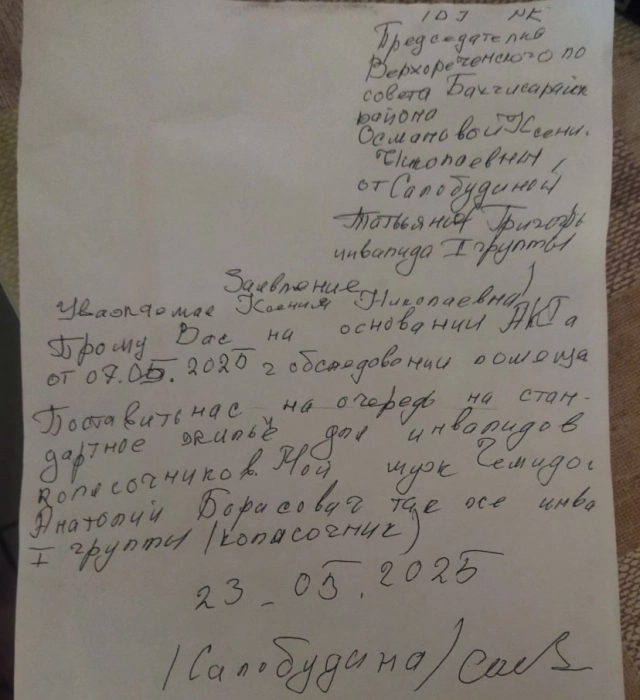 Председателю
Верхореченского по
совета Бахчисарайск
района
Османовой Ксени.
Николаевны
от Салобудиной
Татьяны Григорь
инвалида I группы
Заявление
Уважаемая Ксения Николаевна!
Прошу Вас на основании АКТа
от 07.05.2025 г обследовании помеще
Поставить нас на очередь на стан-
дартное жильё для инвалидов
колясочников. Мой муж
Анатолий Борисович так же инва
I группы (колясочник)
23-05.2025
/Салобудина/